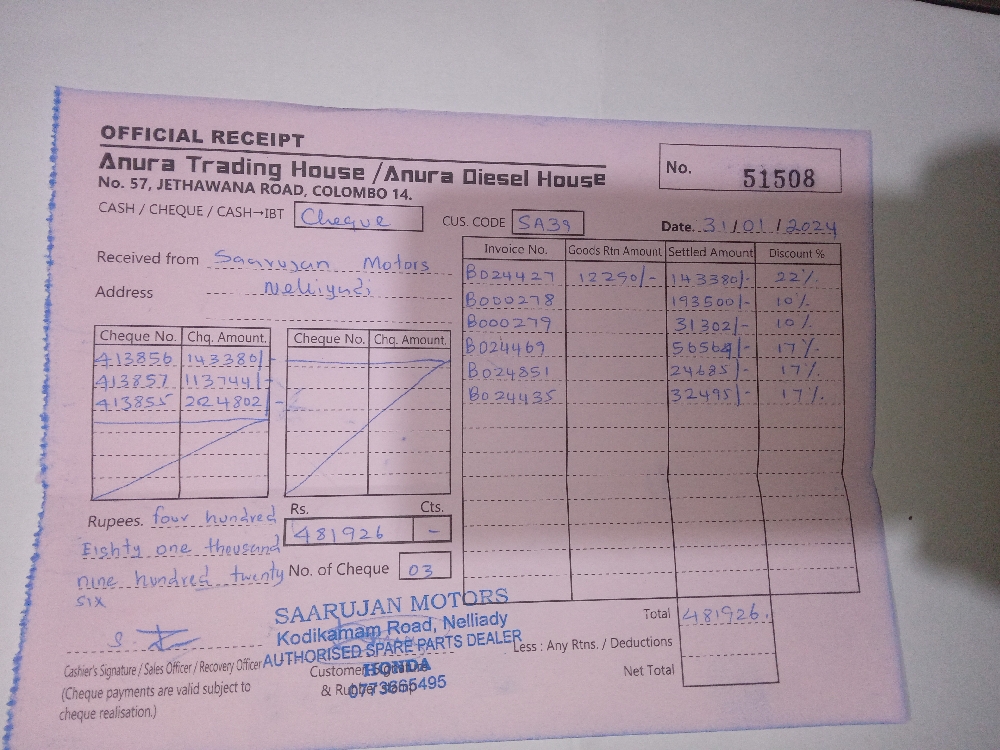 OFFICIAL RECEIPT
Anura Trading House /Anura Diesel House
No. 57, JETHAWANA ROAD, COLOMBO 14.
No. 51508
CASH / CHEQUE / CASH→IBT Cheque
CUS. CODE SA39
Date. 31/01/2024
Received from Saarujan Motors
Address Nelliyadi
Cheque No. Chq. Amount. Cheque No. Chq. Amount.
413856 143380/-
413857 113744/-
413855 224802/-
Invoice No. Goods Rtn Amount Settled Amount Discount %
B024427 12290/- 143380/- 22%
B000278 193500/- 10%
B000279 31302/- 10%
B024469 56564/- 17%
B024851 24685/- 17%
B024435 32495/- 17%
Rupees. four hundred
Eighty one thousand
nine hundred twenty
six
Rs. Cts.
481926 -
No. of Cheque 03
Total 481926.
Less : Any Rtns. / Deductions
Net Total
SAARUJAN MOTORS
Kodikamam Road, Nelliady
AUTHORISED SPARE PARTS DEALER
HONDA
0773665495
Cashier's Signature / Sales Officer / Recovery Officer
(Cheque payments are valid subject to
cheque realisation.)
Customer
& Rubber